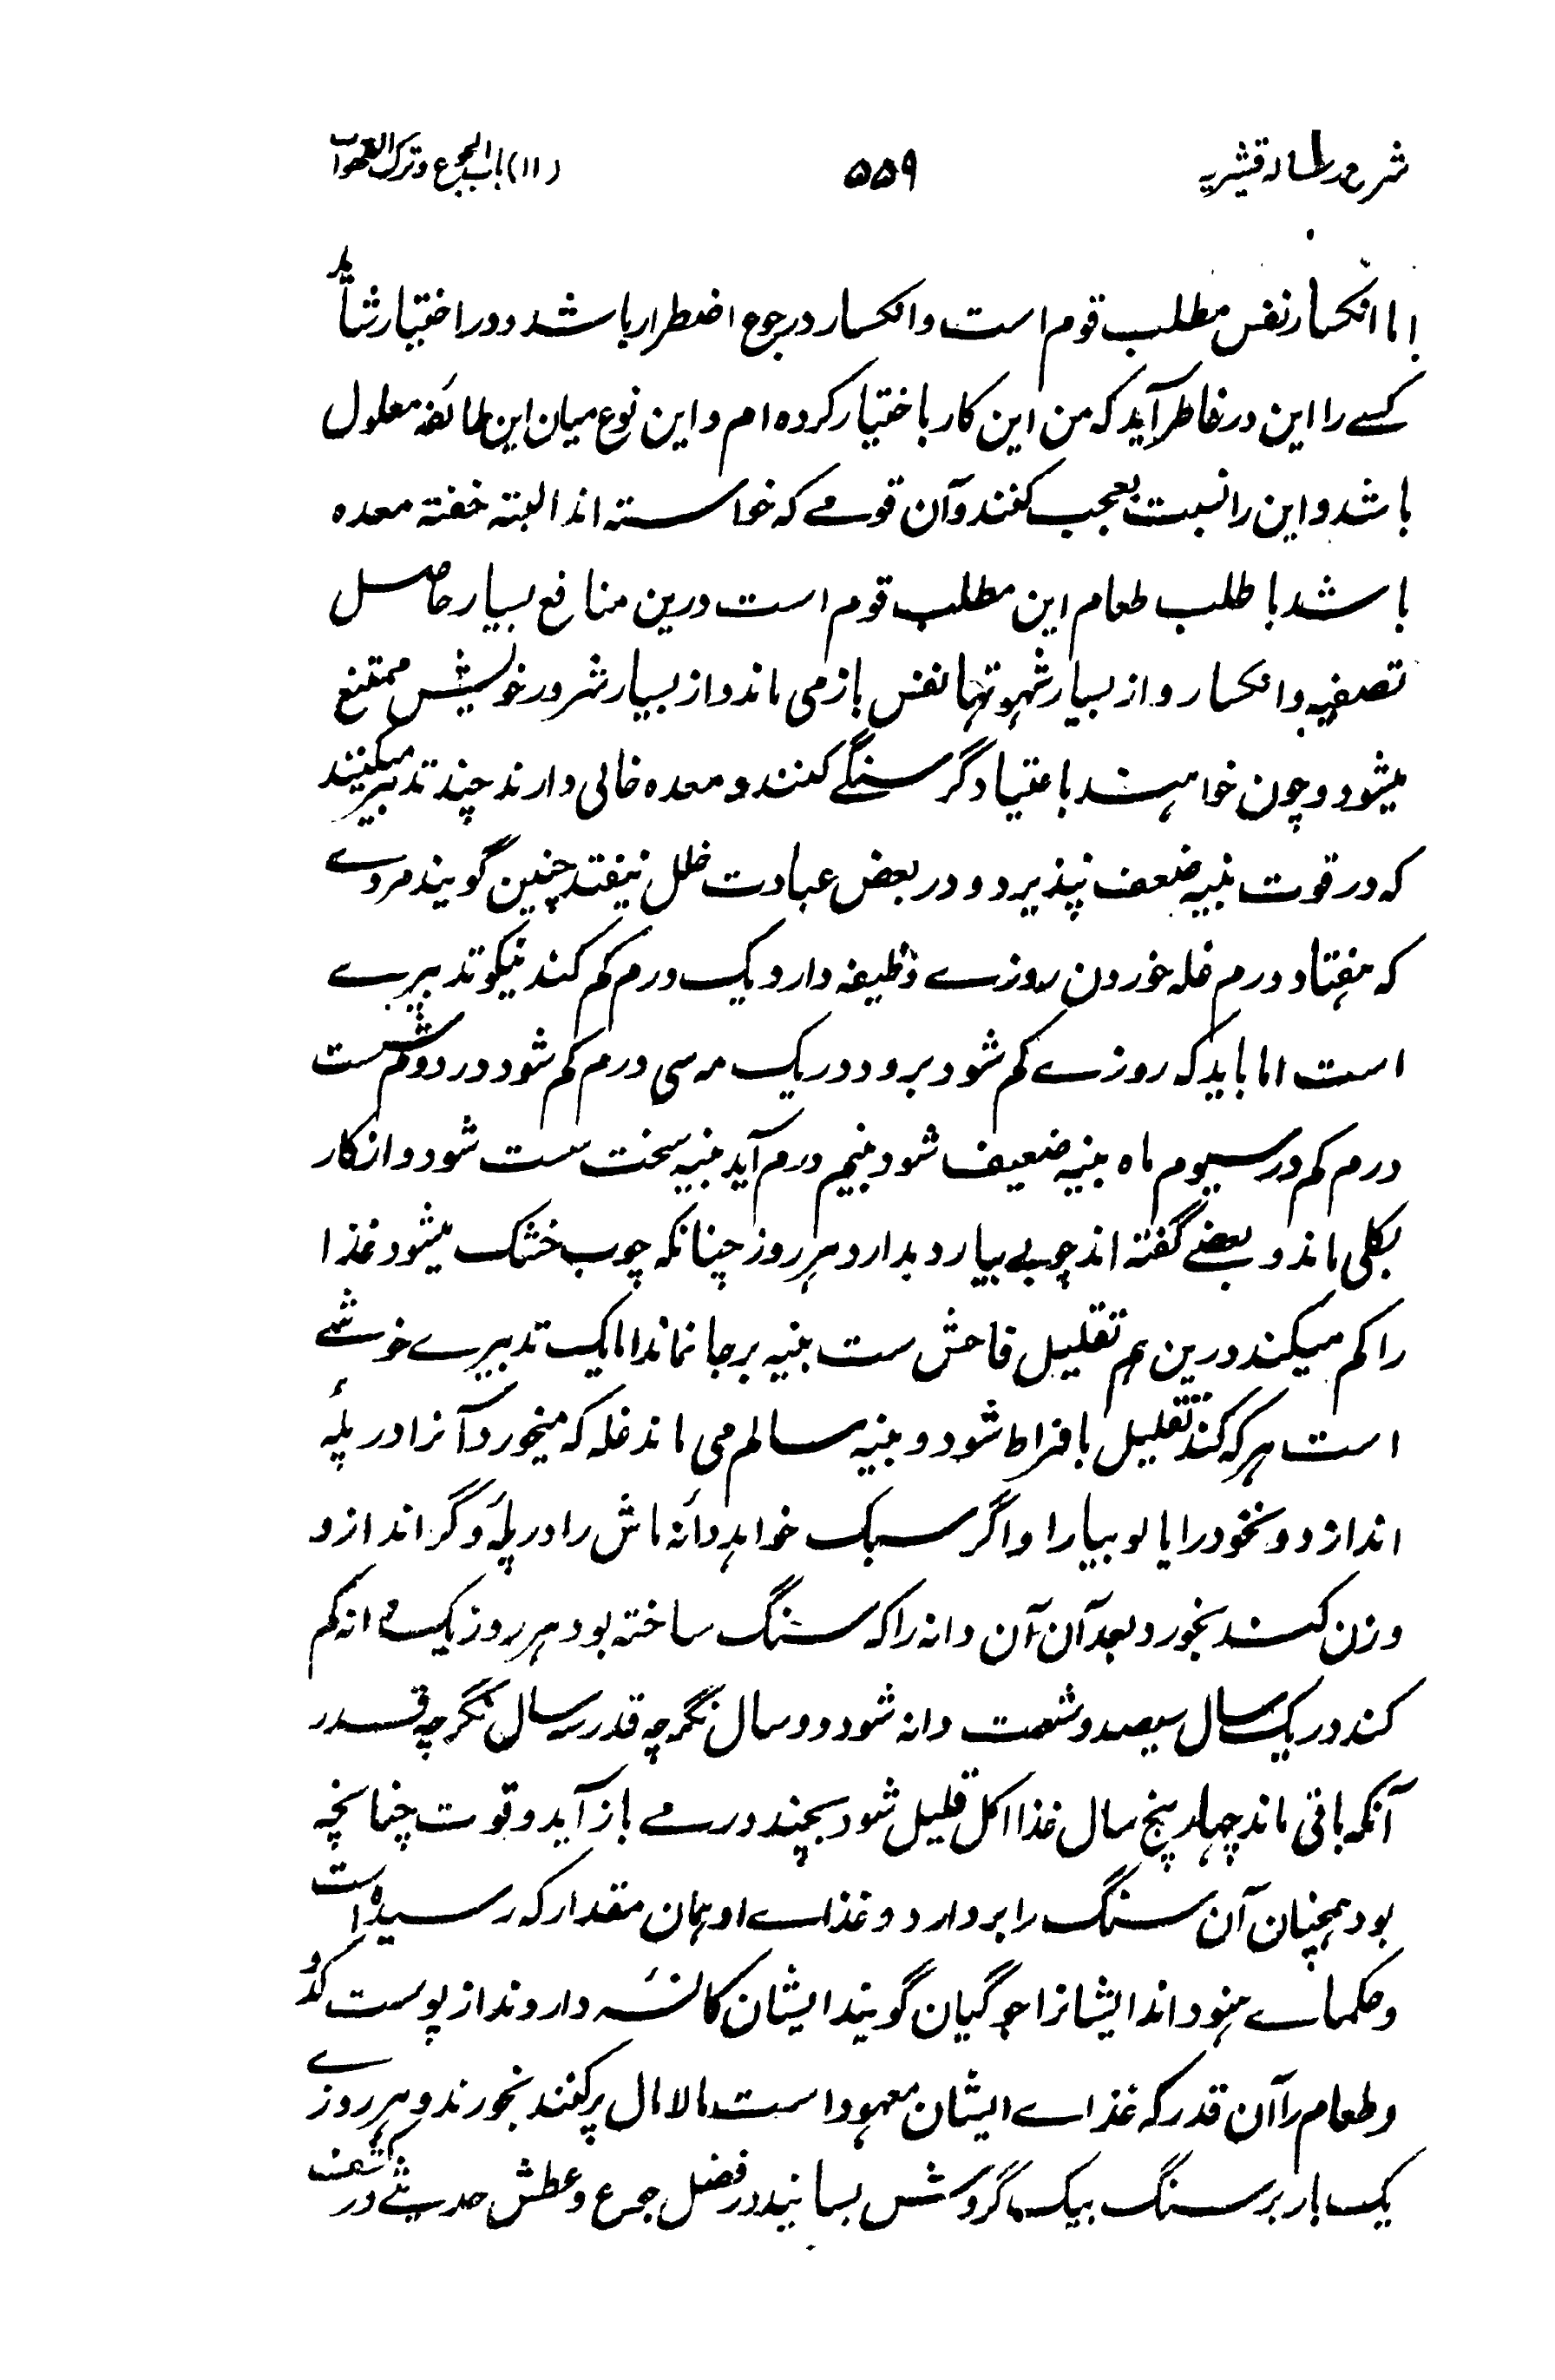 شرح رساله قشیریه ۵۵۹ (۱۱) باب الجوع و ترک الشهوات
اما انکسار نفس مطلب قوم است و انکسار در جوع اضطرار باشد و در اختیار شاید
کسے را این در خاطر آید که من این کار باختیار کرده ام و این نوع میان این طائفه معلول
باشد و این را نسبت بعجب کنند و آن قومے که خواسته اند البته خفته معده
باشد با طلب طعام این مطلب قوم است درین منافع بسیار حاصل
تصفیه و انکسار و از بسیار شهوتها نفس باز می ماند و از بسیار شرور خویش ممتنع
میشود و چون خواهند باعتیاد گرسنگے کنند و معده خالی دارند چند تدبیر میکنند
که در قوت بنیه ضعف نپذیرد و در بعض عبادت خلل نیفتد چنین گویند مردے
که هفتاد درم غله خوردن روزے وظیفه دارد یک درم کم کند نیکو تدبیرے
است اما باید که روزے کم شود برود در یک مه سی درم کم شود در دوم شست
درم کم در سیوم ماه بنیه ضعیف شود بنیم درم آید بنیه سخت سست شود و از کار
بکلی ماند و بعضے گفته اند چوبے بیارد بدارد هر روز چنانکه چوب خشک میشود غذا
را کم میکند درین هم تقلیل فاحش ست بنیه بر جا نماند اما یک تدبیرے خوشے
است هر که کند تقلیل بافراط شود و بنیه سالم می ماند غله که میخورد آنرا در پلۀ
اندازد و نخود را یا لوبیا را و اگر سبک خواهد دانه ماش را در پلۀ و گر اندازد و
وزن کند بخورد بعد آن آن دانه را که سنگ ساخته بود هر روز یک دانه کم
کند در یک سال سیصد و شصت دانه شود دو سال نگر چه قدر سه سال نگر چه قدر
آنکه باقی ماند چهار پنج سال غذا اکل قلیل شود بچند درمے باز آید و قوت چنانچه
بود همچنان آن سنگ را بردارد و غذاے او همان مقدار که رسیده است
و حکماے هنود اند ایشانرا جوگیان گویند ایشان کاسۀ دارند از پوست کدو
و طعام را آن قدر که غذاے ایشان معهود است مالامال پر کنند بخورند و هر روزے
یک بار بر سنگ بیک گردش بسایند در فضل جوع و عطش حدیثے در کشف